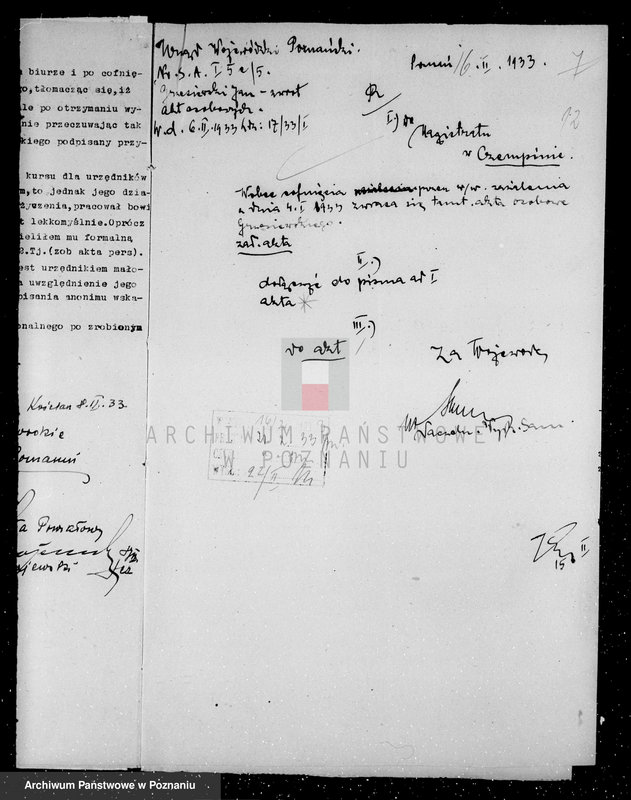 biurze i po cofnię-
go, tłomacząc się, iż
le po otrzymaniu wy-
nie przeczuwając tak
kiego podpisany przy-
kursu dla urzędników
m, to jednak jego dzia-
życzenia, pracował bowi
t lekkomyślnie. Oprócz
ieliłem mu formalną
2. Tj. (zob akta pers).
est urzędnikiem mało-
a uwzględnienie jego
pisania anonimu wska-
onalnego po zrobionym
8. II. 33
Urząd Wojewódzki Poznański.
No. S.A. I 5 c/5.
Jan - zwrot
akt osobowych.
W. d. 6. II. 1933 17/33/I
Poznań 16. II. 1933
7
12
I.) Do
Magistratu
w Czempiniu.
Wobec cofnięcia przez w/w. zażalenia
z dnia 4. I 1933 zwraca się tamt. akta osobowe
zał. akta
II.)
dołączyć do pisma ad I
akta
III.)
do akt
Za Wojewodę
Naczelnik Wydz.
15 II
ARCHIWUM PAŃSTWOWE
W POZNANIU
Archiwum Państwowe w Poznaniu